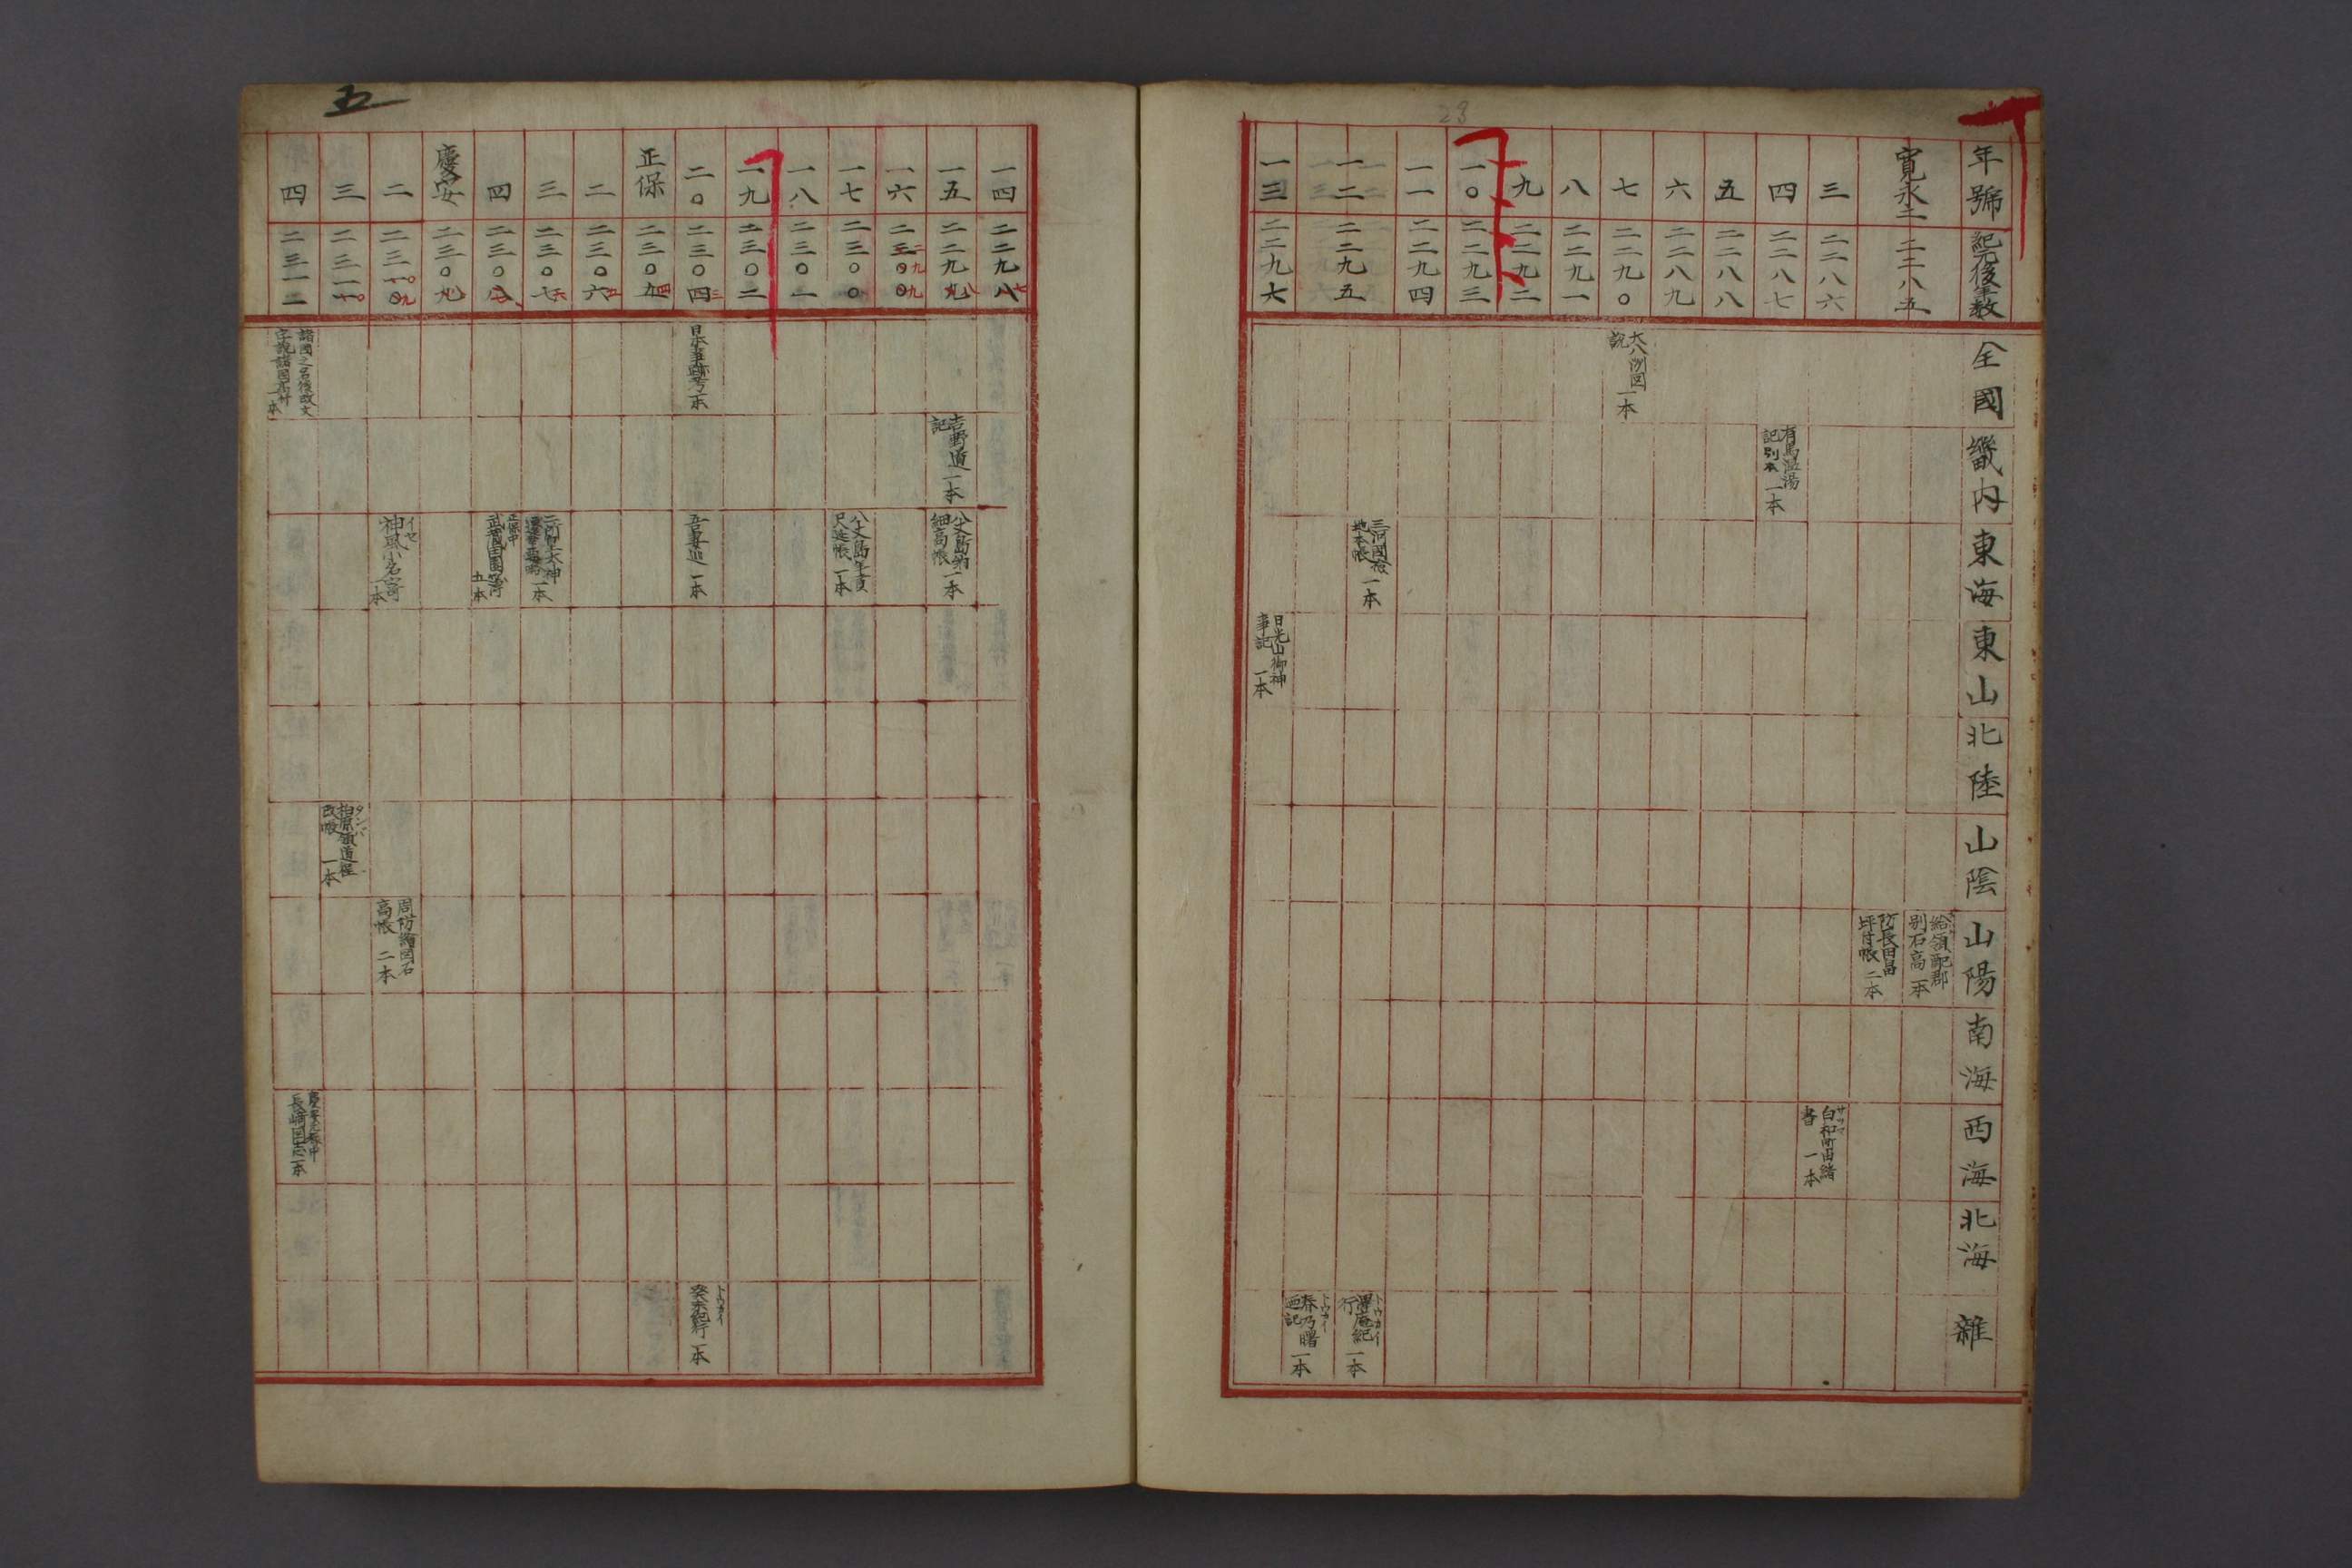 23
年號
紀元後年数
全國
畿内
東海
東山
北陸
山陰
山陽
南海
西海
北海
雜
寛永二
二二八五
給領配郡
別石高 一本
防長田畠
坪付帳 二本
三
二二八六
サツマ
白和町由緒
書 一本
四
二二八七
有馬温湯
記別本 一本
五
二二八八
六
二二八九
七
二二九〇
大八洲図
説 一本
八
二二九一
九
二二九二
一〇
二二九三
一一
二二九四
一二
二二九五
三河國検
地本帳 一本
トウカイ
澤庵紀
行 一本
トウカイ
春乃曙
廼記 一本
一三
二二九六
日光山御神
事記 一本
五
一四
二二九八七
一五
二二九九八
吉野道
記 一本
八丈島納
細高帳 一本
一六
二三〇〇
二九九
一七
二三〇〇
八丈島年貢
尺延帳 一本
一八
二三〇一
一九
二三〇二
二〇
二三〇四三
日本事跡考 一本
吾妻巡 一本
トウカイ
癸未紀行 一本
正保
二三〇五四
二
二三〇六五
三
二三〇七六
一本
四
二三〇八七
正保中
五本
慶安
二三〇九八
二
二三一〇
九
イセ
神風小名寄
一本
周防諸國石
高帳 二本
三
二三一一〇
タンバ
柏原領道程
改帳 一本
四
二三一二
諸國之名後改文
字説諸国高附
一本
長崎図志 一本